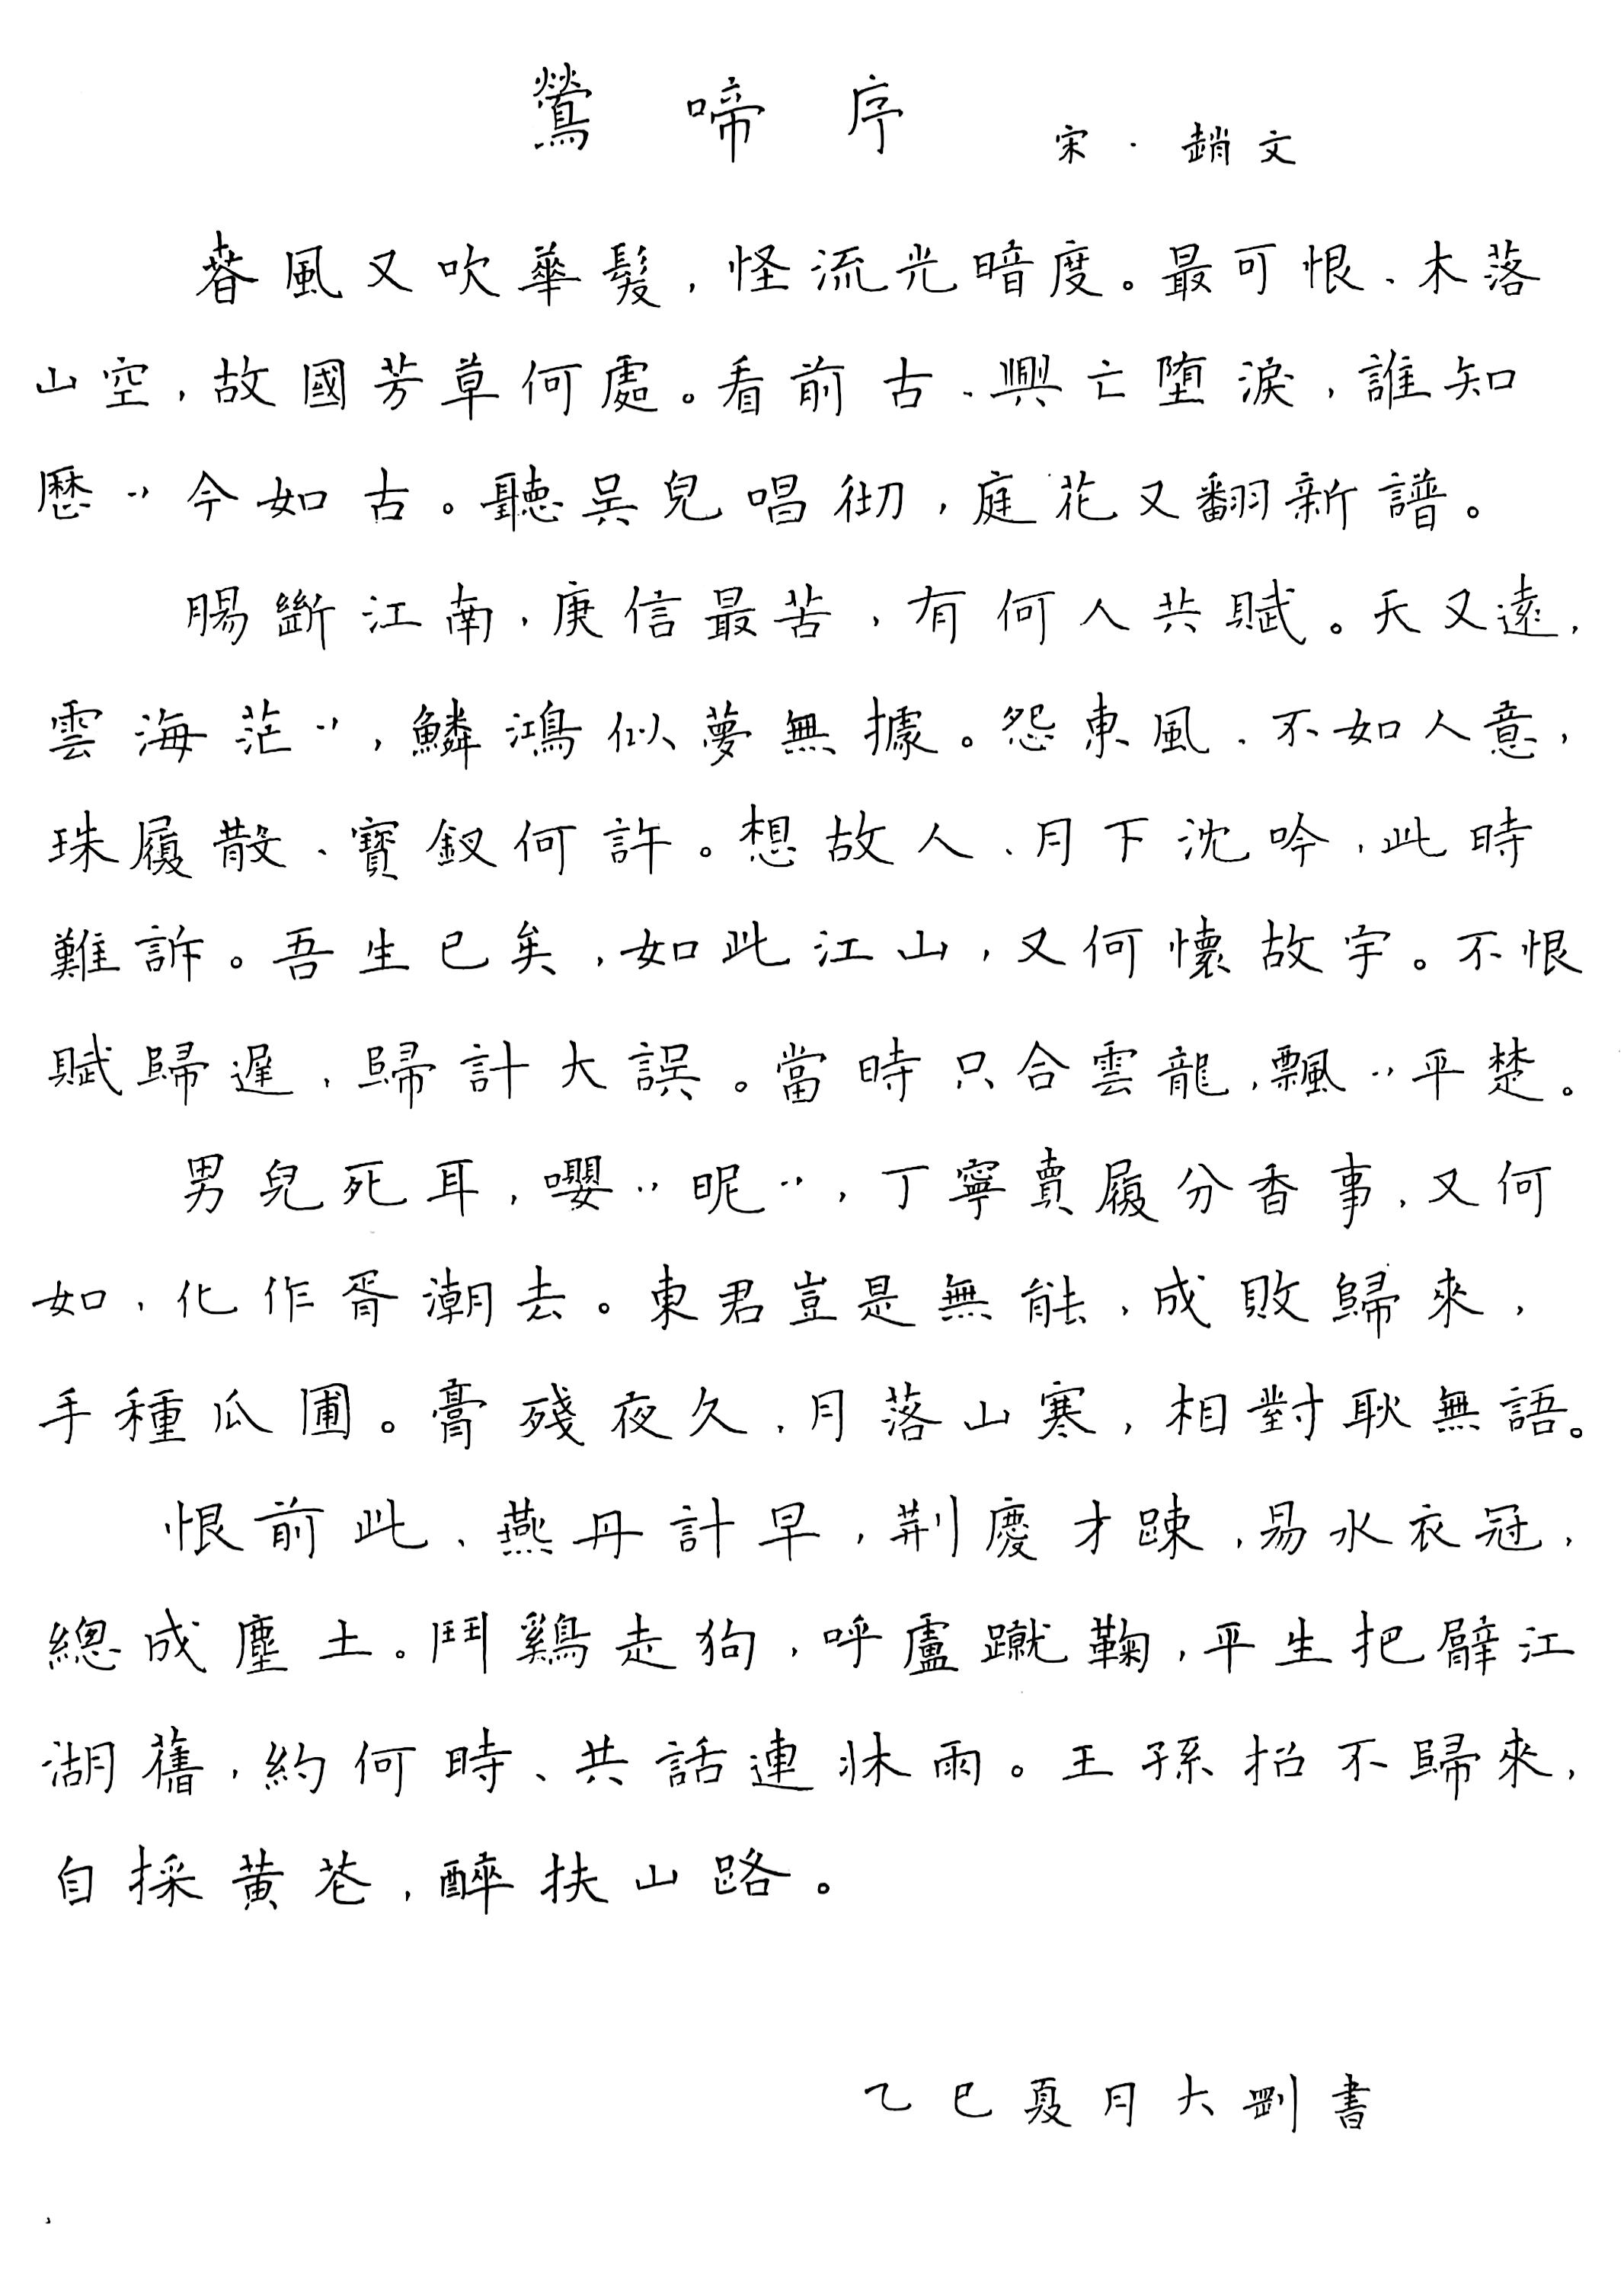 鶯啼序 宋·趙文
春風又吹華髮,怪流光暗度。最可恨、木落
山空,故國芳草何處。看前古、興亡墮淚,誰知
歷〃今如古。聽吳兒唱彻,庭花又翻新譜。
腸斷江南,庾信最苦,有何人共賦。天又遠,
雲海茫〃,鱗鴻似夢無據。怨東風、不如人意,
珠履散、寶釵何許。想故人、月下沈吟,此時
難訴。吾生已矣,如此江山,又何懷故宇。不恨
賦歸遲,歸計大誤。當時只合雲龍,飄〃平楚。
男兒死耳,嚶〃昵〃,丁寧賣履分香事,又何
如,化作胥潮去。東君豈是無能,成敗歸來,
手種瓜圃。膏殘夜久,月落山寒,相對耿無語。
恨前此、燕丹計早,荆慶才踈,易水衣冠,
總成塵土。鬥鷄走狗,呼盧蹴鞠,平生把臂江
湖舊,約何時、共話連牀雨。王孫招不歸來,
自採黄花,醉扶山路。
乙巳夏月大剛書